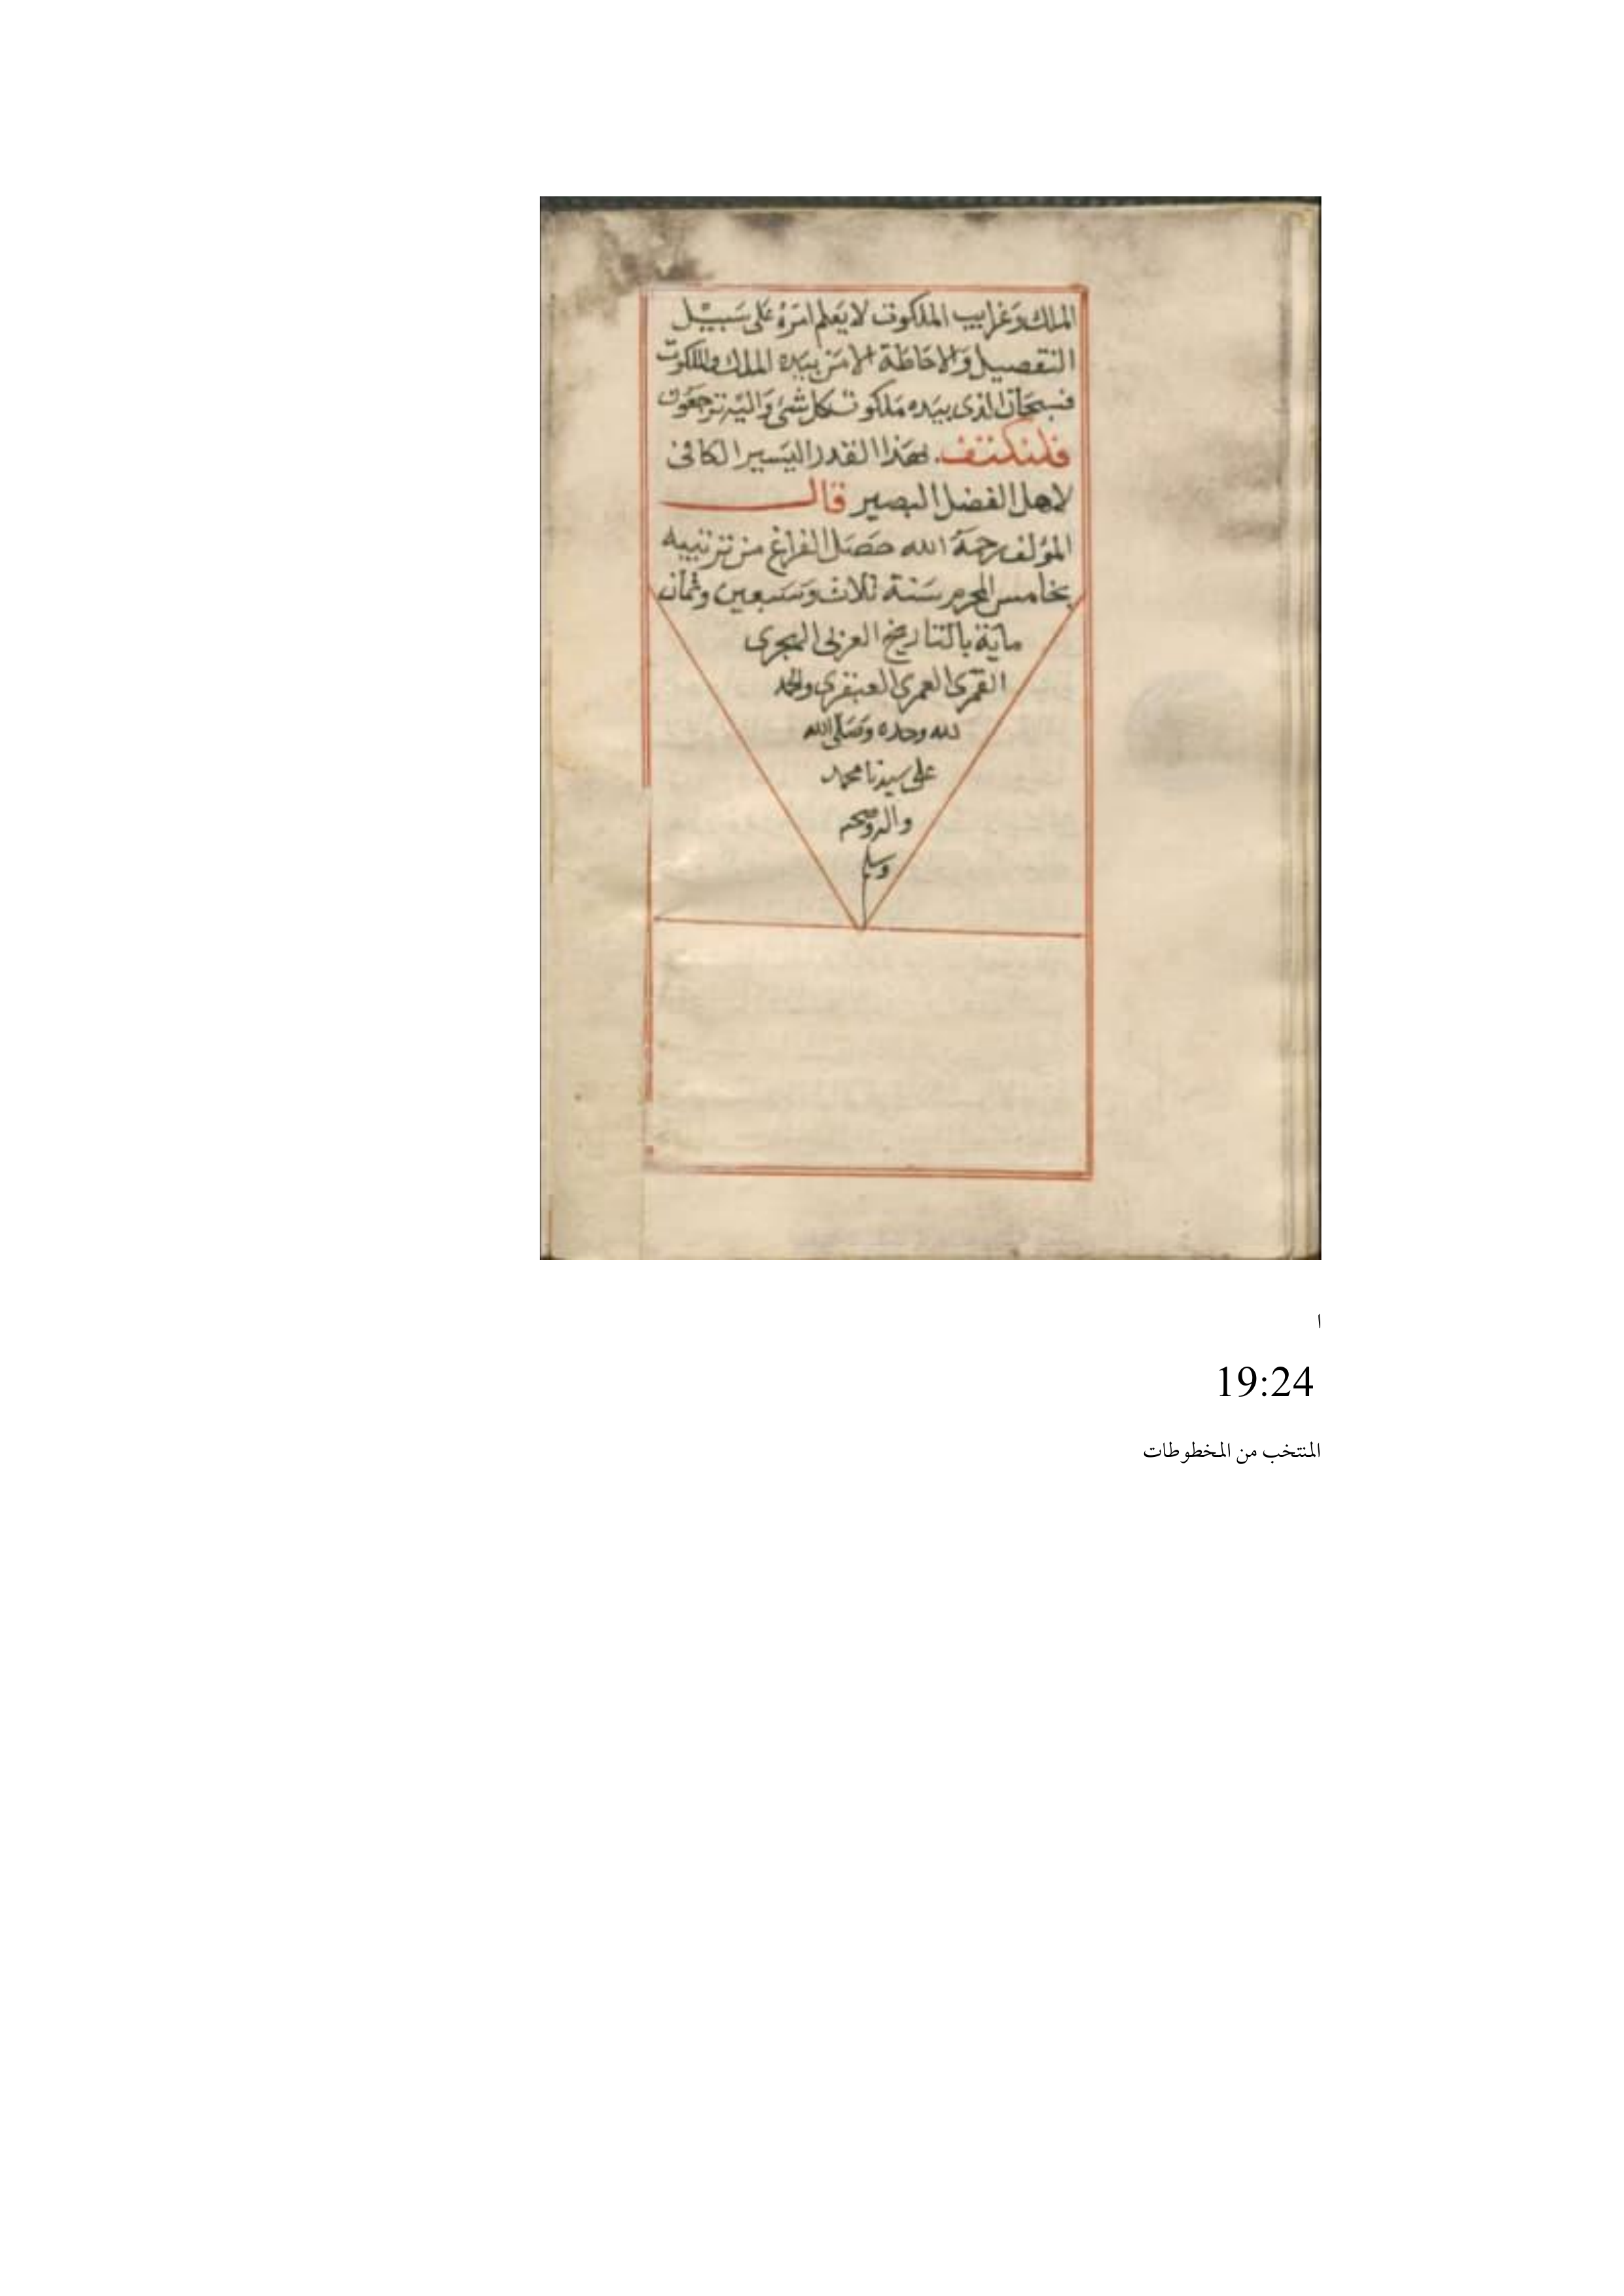 الملك وغرايب الملكوت لا يعلم امره على سبيل
التفصيل والاحاطة الا من بيده الملك والملكوت
فسبحان الذى بيده ملكوت كل شئ واليه ترجعون
فلنكتف بهذا القدر اليسير الكافى
لاهل الفضل البصير قال
المؤلف رحمة الله حصل الفراغ من ترتيبه
بخامس المحرم سنة ثلاث وسبعين وثمان
ماية بالتاريخ العربى الهجرى
القمرى العمرى والحمد
لله وحده وصلى الله
على سيدنا محمد
واله وصحبه
وسلم
ا
19:24
المنتخب من المخطوطات